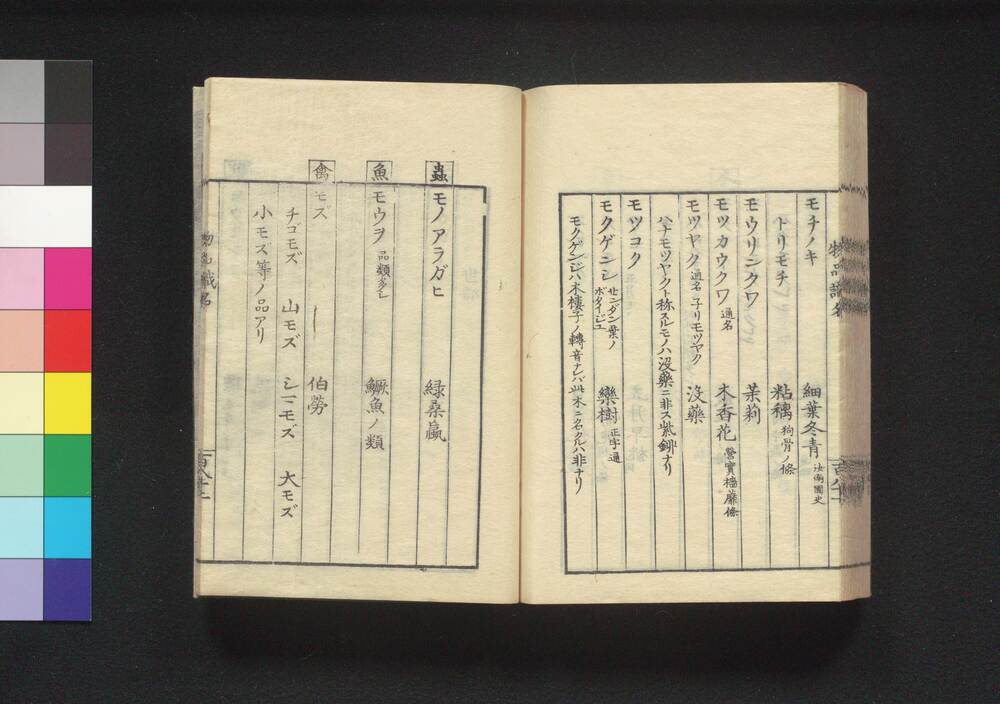 物品識名
モチノキ 細葉冬青 汝南圃史
トリモチ 粘𪐝 狗骨ノ條
モウリンクワ 茉莉
モツカウクワ 通名 木香花 營實墻蘼條
モツヤク 通名 子リモツヤク 没藥
ハナモツヤクト称スルモノハ没藥ニ非ス紫鉚ナリ
モツコク
モクゲンジ センダン葉ノボダイジユ 欒樹 正字通
モクゲンジハ木槵子ノ轉音ナレバ此木ニ名クルハ非ナリ
蟲 モノアラガヒ 緑桑蠃
魚 モウヲ 品類多シ 鱖魚ノ類
禽 モズ 伯勞
チゴモズ 山モズ シマモズ 大モズ
小モズ等ノ品アリ
物品識名